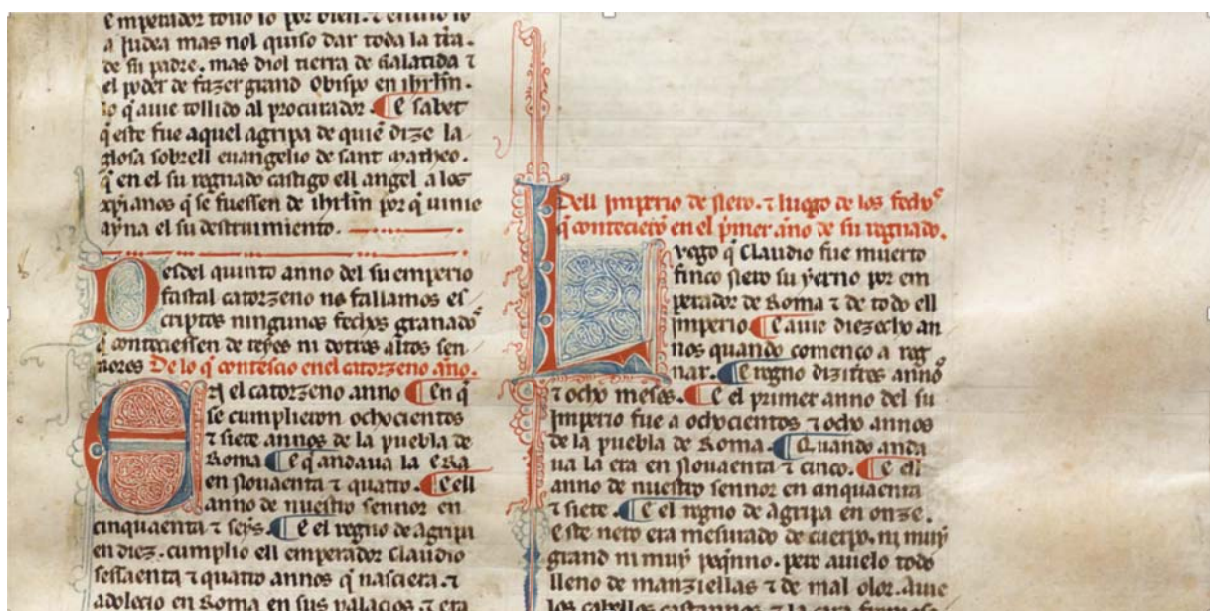 Emperador touo lo por bien. ⁊ enuio lo
a judea mas nol quiso dar toda la tr̃a.
de su padre. mas diol tierra de Galatida ⁊
el poder de fazer grand Obispo en ihrl̃m.
lo q̃ auie tollido al procurador. ¶ E sabet
q̃ este fue aquel agripa de quiẽ dize la
glosa sobrell euangelio de sant Matheo.
q̃ en el su regnado castigo ell angel a los
xp̃ianos q̃ se fuessen de ihrl̃m por q̃ uinie
ayna el su destruimiento.
Desdel quinto anno del su emperio
fastal catorzeno no fallamos es
criptos ningunos fechos granados
q̃ conteciessen de reyes ni dotros altos sen
nores De lo q̃ contescio en el catorzeno año.
En el catorzeno anno ¶ En q̃
se cumplieron ochocientos
⁊ siete annos de la puebla de
Roma ¶ E q̃ andaua la Era
en Nouaenta ⁊ quatro. ¶ E ell
anno de nuestro sennor en
cinquaenta ⁊ seys. ¶ E el regno de Agripa
en diez. cumplio ell emperador Claudio
sessaenta ⁊ quatro annos q̃ nasciera. ⁊
adolecio en Roma en sus palacios. ⁊ era
Dell Imperio de Nero. ⁊ luego de los fechos
q̃ contecierõ en el p̃mer año de su regnado.
Luego q̃ Claudio fue muerto
finco Nero su yerno por em
perador de Roma ⁊ de todo ell
Imperio. ¶ E auie diezecho an
nos quando comenco a reg
nar. ¶ E regno dizittes annos
⁊ ocho meses. ¶ E el primer anno del su
Imperio fue a ochocientos ⁊ ocho annos
de la puebla de Roma. ¶ Quando anda
ua la era en Nouaenta ⁊ cinco. ¶ E ell
anno de nuestro sennor en cinquaenta
⁊ siete. ¶ E el regno de Agripa en onze.
Este nero era mesurado de cuerpo. ni muy
grand ni muy peq̃nno. pero auielo todo
lleno de manziellas ⁊ de mal olor. Auie
los cabellos castannos ⁊ la cara fremosa